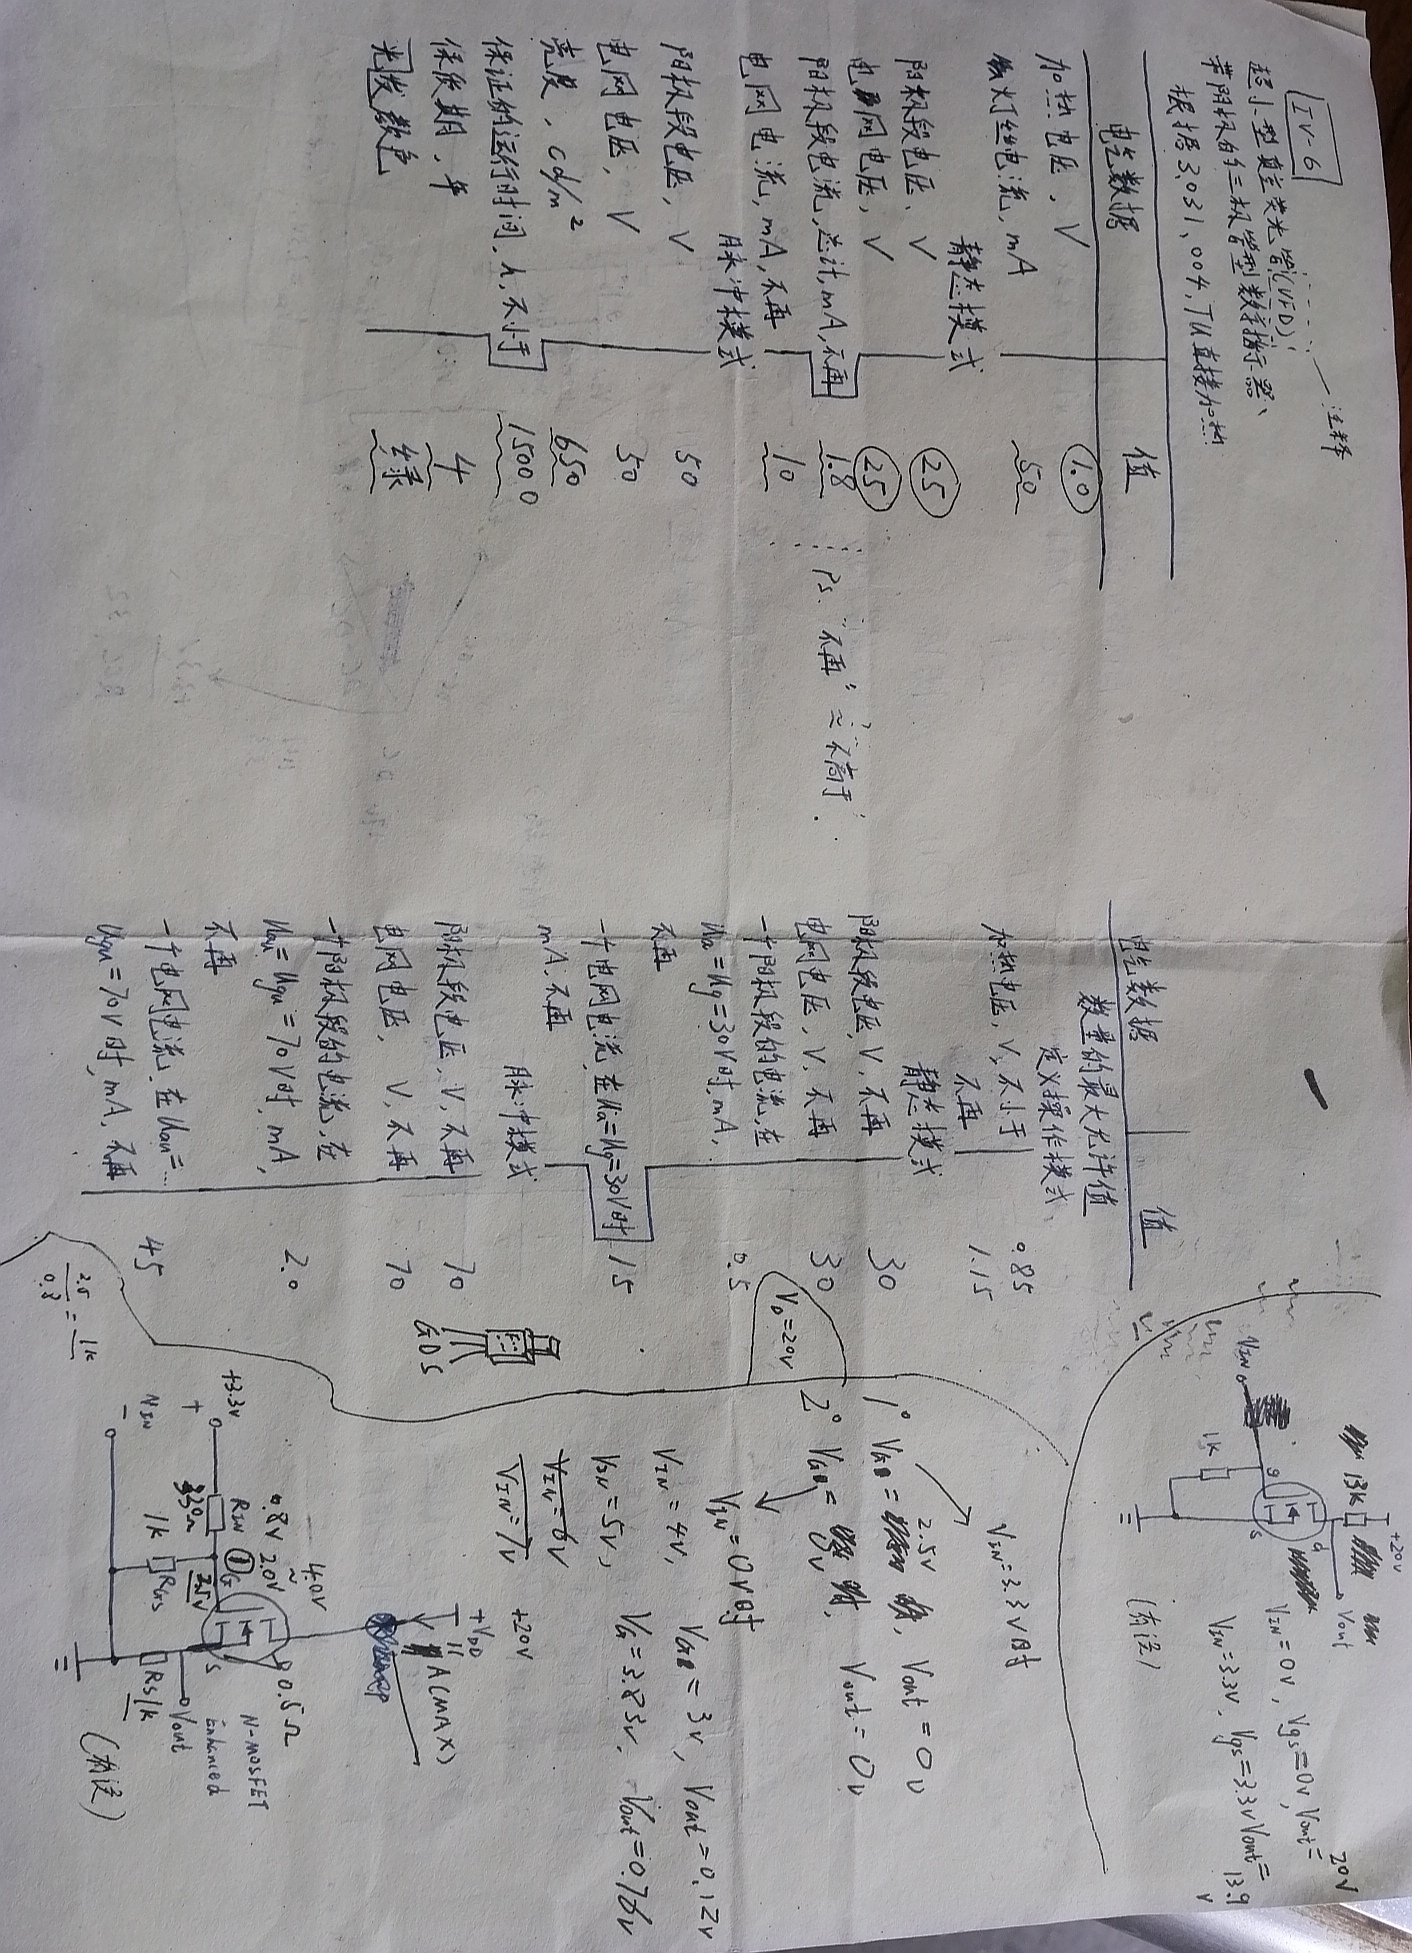 IV-6
注释
超小型真空荧光管(VFD)
带阴极的三极管型数字指示器、
根据3.031.004.TU直接加热
电气数据 值
加热电压, V 1.0
灯丝电流, mA 50
静态模式
阳极段电压, V 25
电网电压, V 25
阳极段电流,总计,mA,不再 1.8
Ps. "不再" ≈ "不高于".
电网电流,mA,不再 10
脉冲模式
阳极段电压, V 50
电网电压, V 50
亮度, cd/m² 650
保证的运行时间, h,不小于 15000
保质期, 年 4
光发颜色 绿
电气数据 值
数量的最大允许值
定义操作模式
加热电压, V, 不小于 0.85
不再 1.15
静态模式
阳极段电压, V, 不再 30
电网电压, V, 不再 30
一个阳极段的电流,在
Ua=Ug=30V时,mA, 0.5
不再
一个电网电流,在Ua=Ug=30V时 15
mA, 不再
脉冲模式
阳极段电压, V, 不再 70
电网电压, V, 不再 70
一个阳极段的电流,在
Uau=Ugu=70V时, mA, 2.0
不再
一个电网电流,在Uau=...
Ugu=70V时, mA, 不再 45
+20V
13K
Vout
d
g
s
VIN
1K
VIN=0V, Vgs=0V, Vout=20V
VIN=3.3V, Vgs=3.3V Vout=13.9V
(有误)
VIN=3.3V时
2.5V
1° VG= 时, Vout=0V
2° VG= 0V 时, Vout=0V
VD=20V
VIN=0V时
VIN=4V, VG=3V, Vout=0.12V
VIN=5V, VG=3.83V, Vout=0.76V
VIN=6V
VIN=7V
GDS
+20V
+VDD
A(MAX)
4.0V
~
0.8V 2.0V
0.5Ω
N-MOSFET
Enhanced
+3.3V
RIN
①
G
S
+
330Ω
2.5V
Vout
1K
RGS
RS 1K
VIN
-
(有误)
2.5/0.8 = 1K